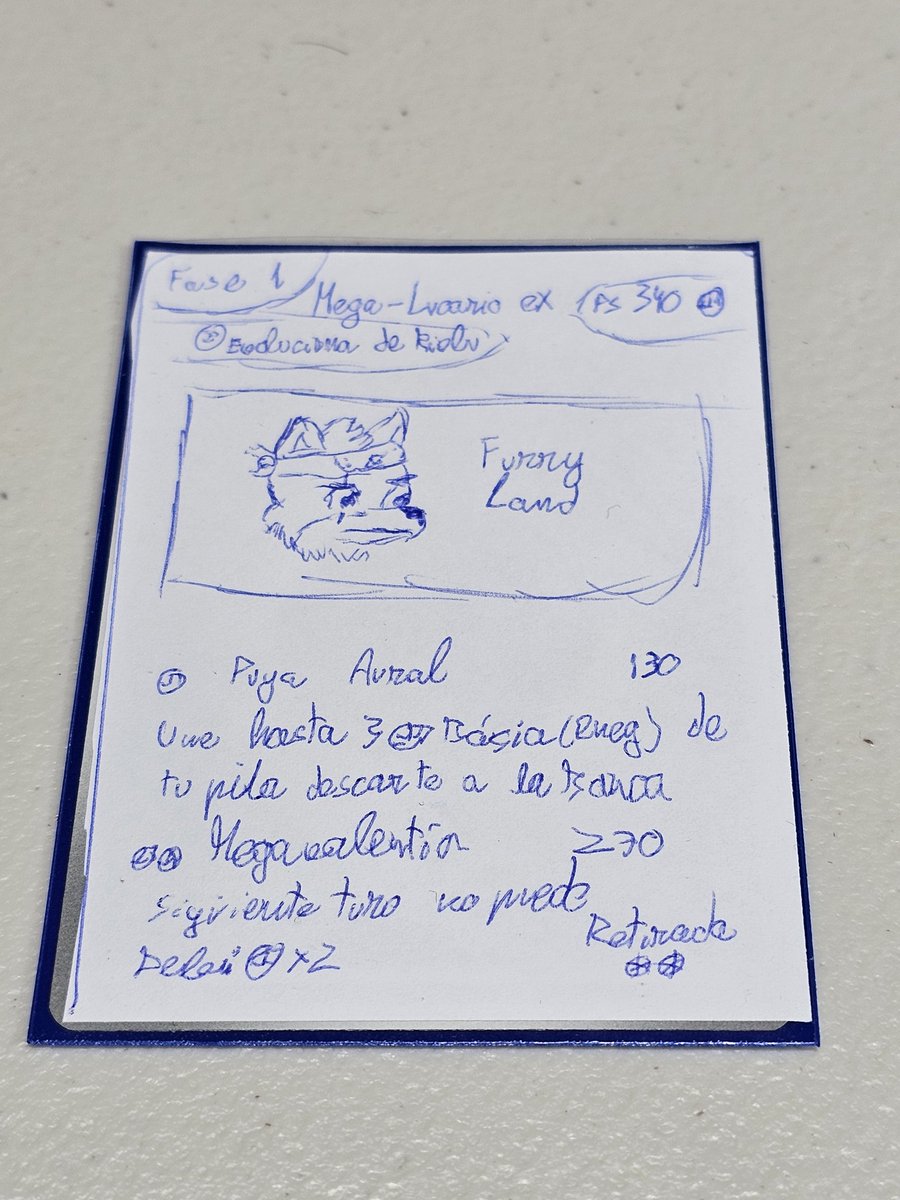 Fase 1
Mega-Lucario ex PS 340
Evoluciona de Riolu
Furry
Land
Puya Aural 130
Une hasta 3 Básia (Eneg) de
tu pila descarte a la Banca
Megavalentín 270
siguiente turo no puede
Retirada
Debili x2